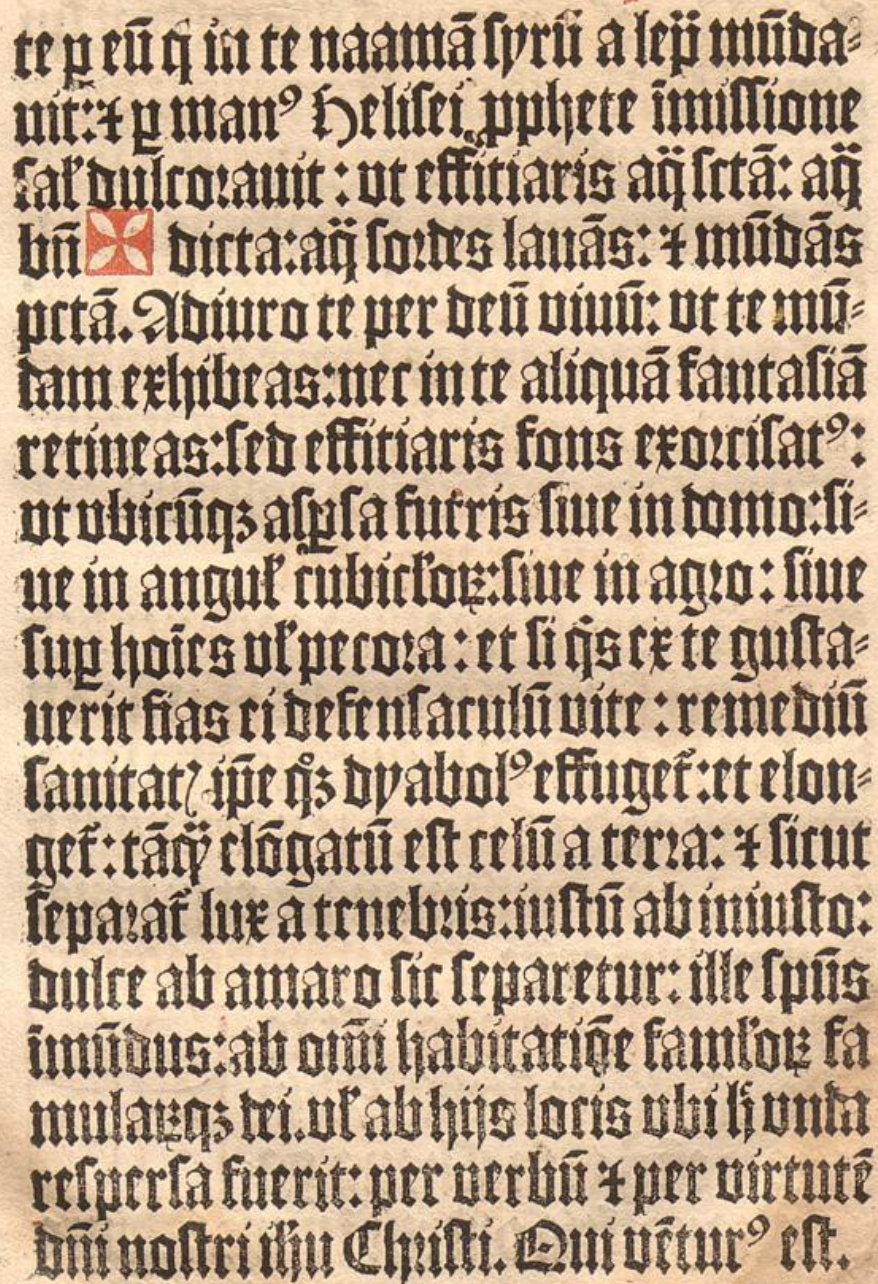 te ꝑ eū q̄ in te naamā syrū a lep̄ mūda⸗
uit: ⁊ ꝑ manꝰ Helisei ꝓphete īmissione
sal̄ dulcorauit : vt effitiaris aq̄ sctā: aq̄
bn̄ ✠ dicta: aq̄ sordes lauās: ⁊ mūdās
pctā. Adiuro te per deū viuū: vt te mū⸗
dam exhibeas: nec in te aliquā fantasiā
retineas: sed effitiaris fons exorcisatꝰ:
vt vbicūqꝫ asꝑsa fueris siue in domo: si⸗
ue in angul̄ cubicl̄oꝝ: siue in agro : siue
suꝑ hoīes vl̄ pecora : et si q̄s ex te gusta⸗
uerit fias ei defensaculū vite : remediū
sanitatꝭ ip̄e qꝫ dyabolꝰ effuget̄: et elon⸗
get̄: tāqꝫ elōgatū est celū a terra: ⁊ sicut
separat̄ lux a tenebris: iustū ab iniusto:
dulce ab amaro sic separetur: ille spūs
īmūdus: ab om̄i habitatiōe faml̄oꝝ fa
mulaꝝqꝫ dei. vl̄ ab hijs locis vbi h̄ vnda
respersa fuerit: per verbū ⁊ per virtutē
dn̄i nostri ih̄u Christi. Qui vēturꝰ est.